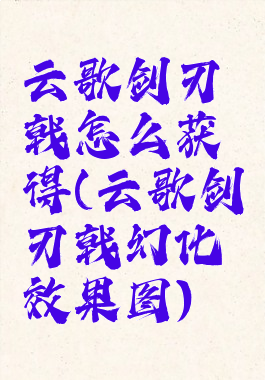 云歌剑刃
戟怎么获
得(云歌剑
刃戟幻化
效果图)